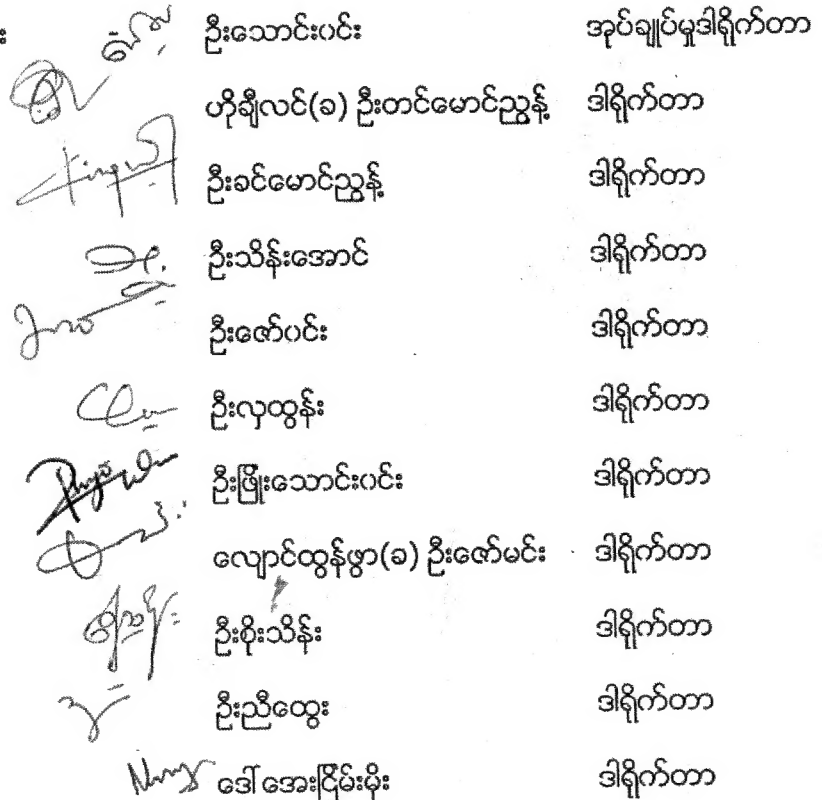 ဦးသောင်းပင်း အုပ်ချုပ်မှုဒါရိုက်တာ
ဟိုချီလင်(ခ) ဦးတင်မောင်ညွန့် ဒါရိုက်တာ
ဦးခင်မောင်ညွန့် ဒါရိုက်တာ
ဦးသိန်းအောင် ဒါရိုက်တာ
ဦးဇော်ပင်း ဒါရိုက်တာ
ဦးလှထွန်း ဒါရိုက်တာ
ဦးဖြိုးသောင်းပင်း ဒါရိုက်တာ
လျောင်ထွန်ဖွာ(ခ) ဦးဇော်မင်း ဒါရိုက်တာ
ဦးစိုးသိန်း ဒါရိုက်တာ
ဦးညီထွေး ဒါရိုက်တာ
ဒေါ်အေးငြိမ်းမိုး ဒါရိုက်တာ